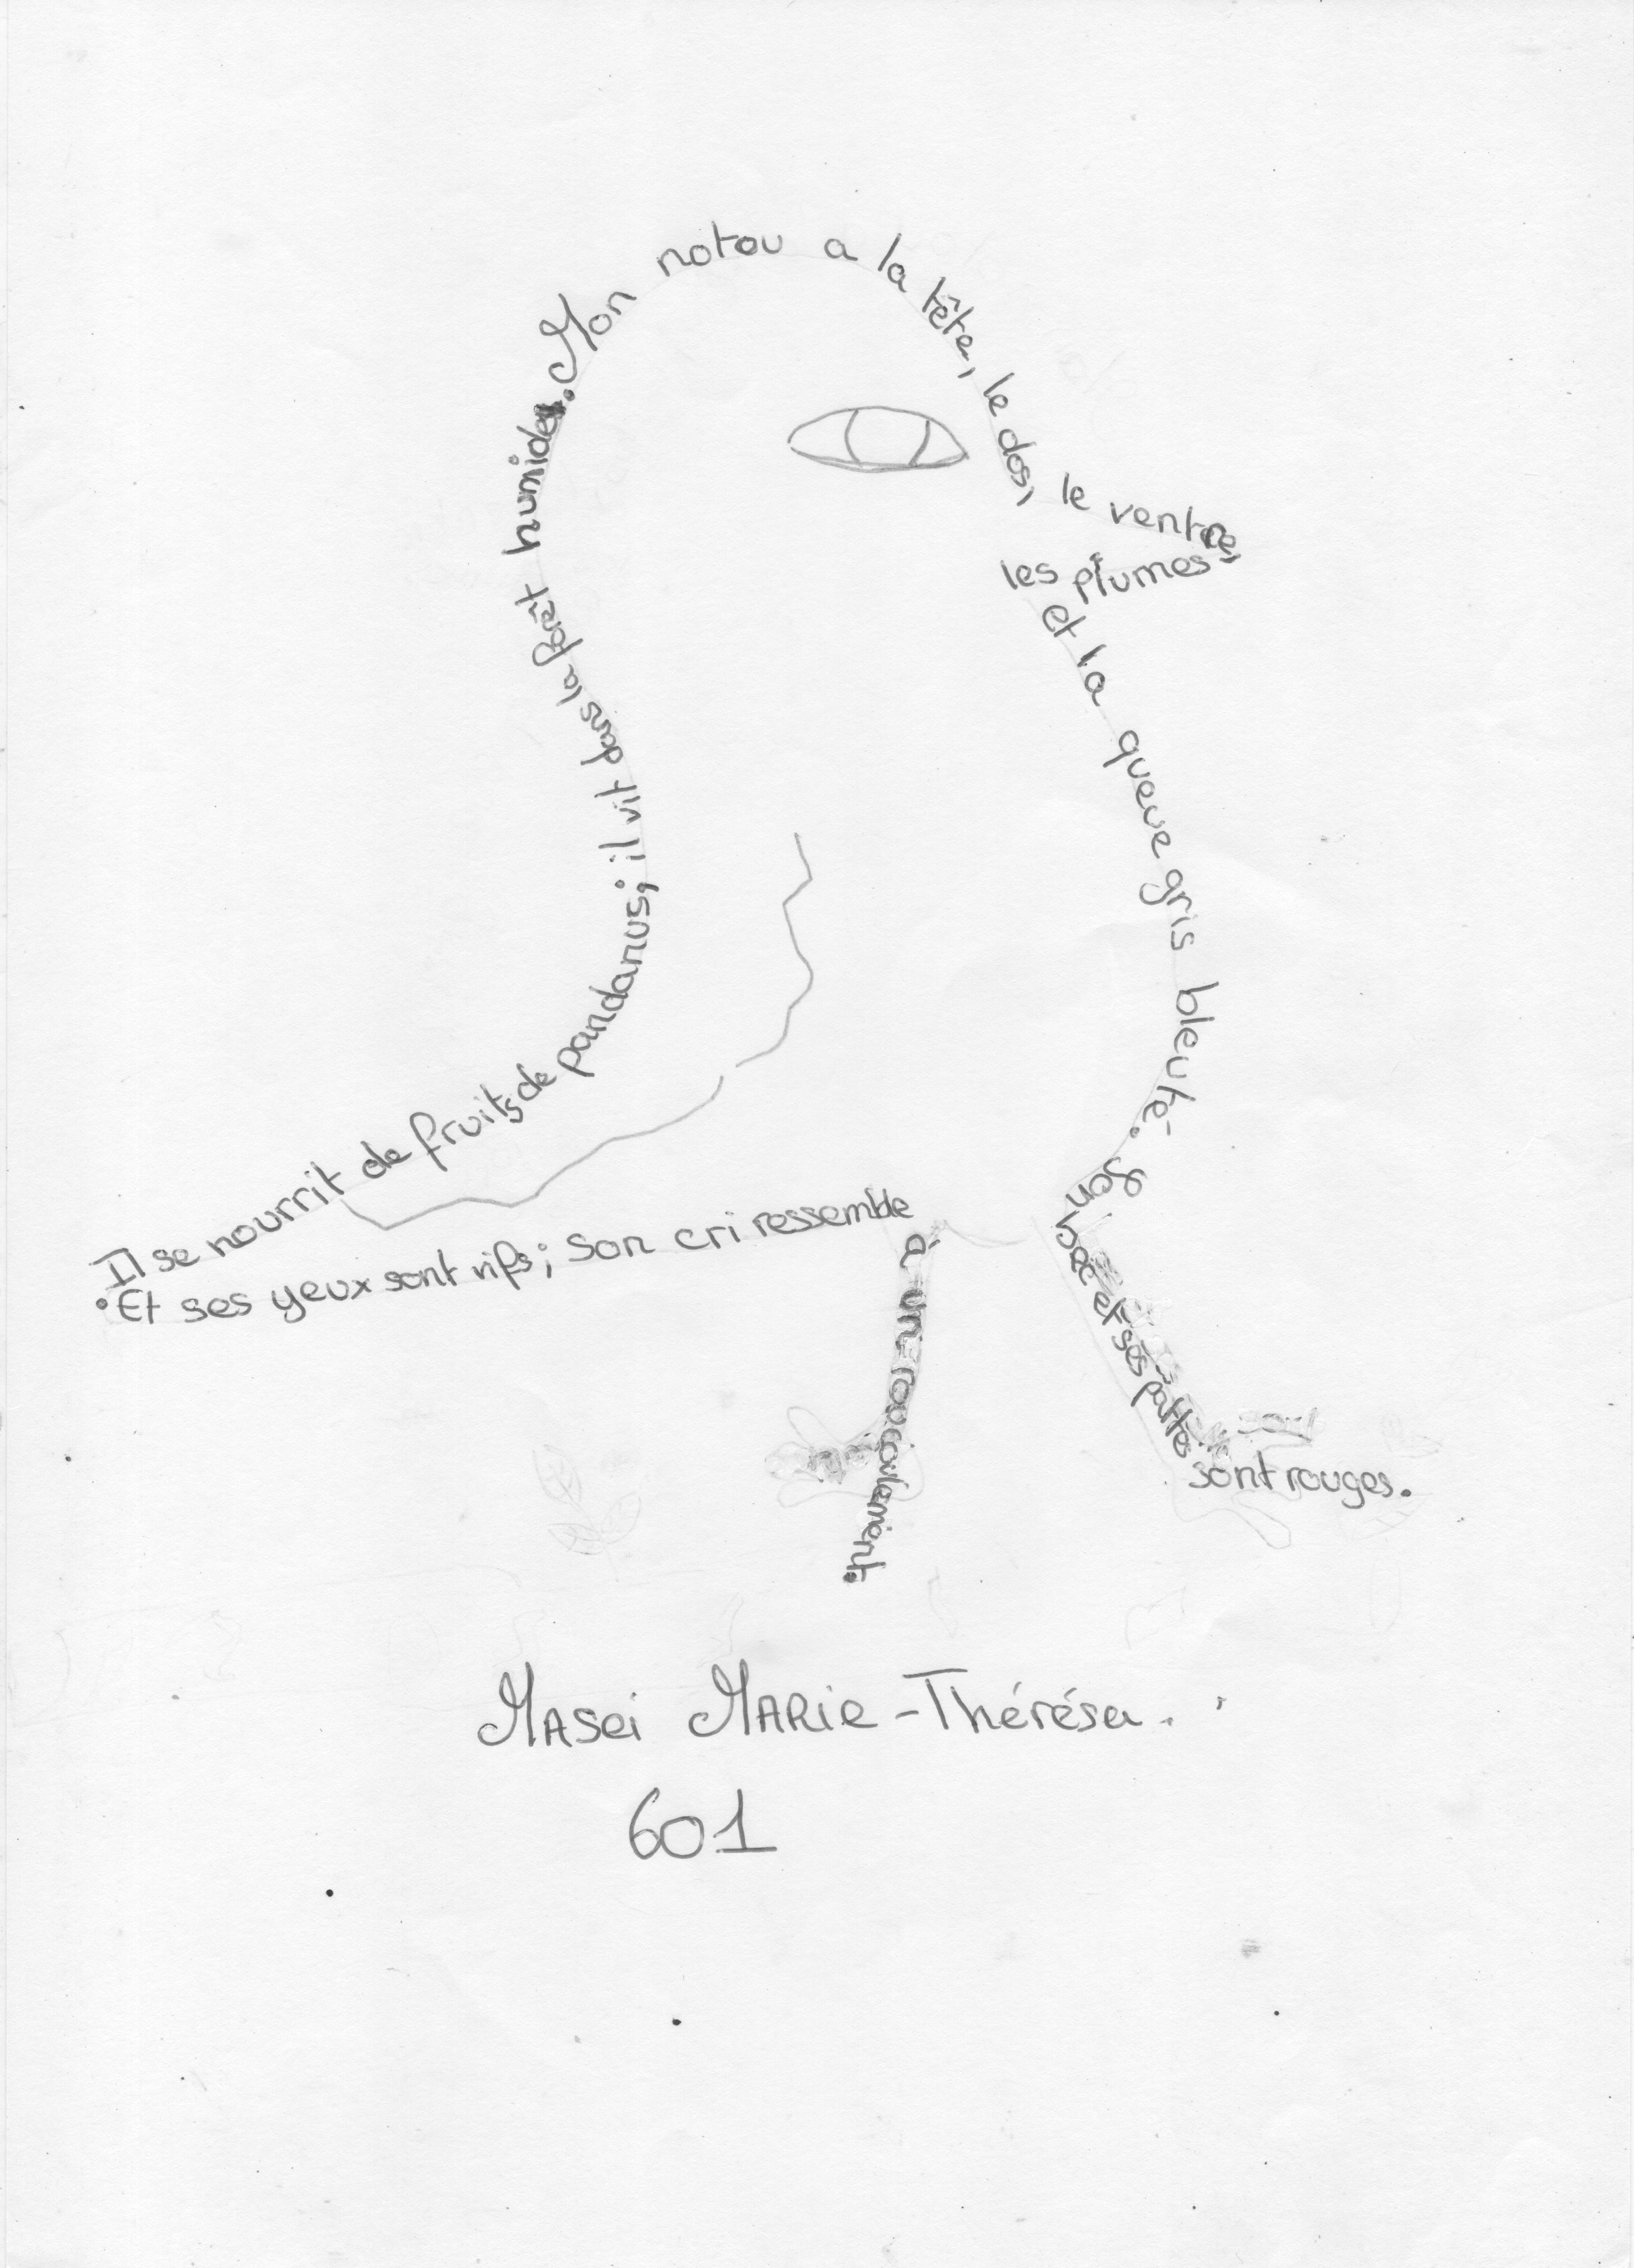 Mon notou a la tête, le dos, le ventre,
les plumes
et la queue gris bleuté.
Son bec et ses pattes
sont rouges.
Il se nourrit de fruits de pandanus; il vit dans la forêt humide.
Et ses yeux sont vifs; son cri ressemble
à un roucoulement.
MASei MARie-Thérésa.
601